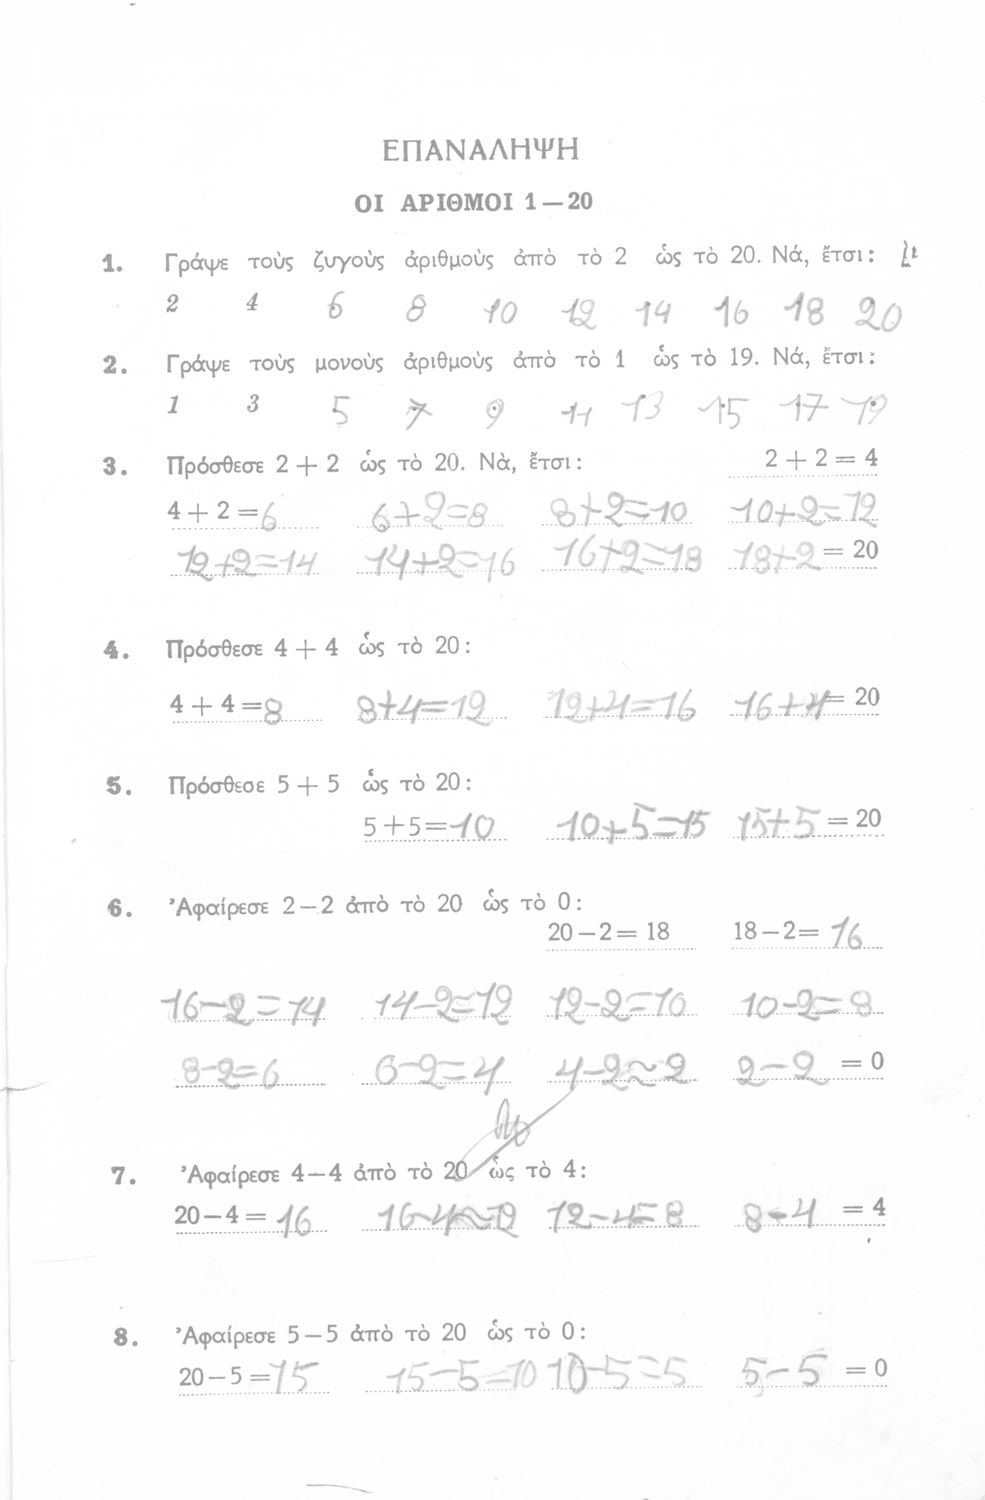 ΕΠΑΝΑΛΗΨΗ
ΟΙ ΑΡΙΘΜΟΙ 1 — 20
1. Γράψε τοὺς ζυγοὺς ἀριθμοὺς ἀπὸ τὸ 2 ὡς τὸ 20. Νά, ἔτσι:
2 4 6 8 10 12 14 16 18 20
2. Γράψε τοὺς μονοὺς ἀριθμοὺς ἀπὸ τὸ 1 ὡς τὸ 19. Νά, ἔτσι:
1 3 5 7 9 11 13 15 17 19
3. Πρόσθεσε 2 + 2 ὡς τὸ 20. Νὰ, ἔτσι: 2 + 2 = 4
4 + 2 = 6 6+2=8 8+2=10 10+2=12
12+2=14 14+2=16 16+2=18 18+2 = 20
4. Πρόσθεσε 4 + 4 ὡς τὸ 20:
4 + 4 = 8 8+4=12 12+4=16 16+4 = 20
5. Πρόσθεσε 5 + 5 ὡς τὸ 20:
5 + 5 = 10 10+5=15 15+5 = 20
6. Ἀφαίρεσε 2 — 2 ἀπὸ τὸ 20 ὡς τὸ 0:
20 — 2 = 18 18 — 2 = 16
16-2=14 14-2=12 12-2=10 10-2=8
8-2=6 6-2=4 4-2=2 2-2 = 0
7. Ἀφαίρεσε 4 — 4 ἀπὸ τὸ 20 ὡς τὸ 4:
20 — 4 = 16 16-4=12 12-4=8 8-4 = 4
8. Ἀφαίρεσε 5 — 5 ἀπὸ τὸ 20 ὡς τὸ 0:
20 — 5 = 15 15-5=10 10-5=5 5-5 = 0